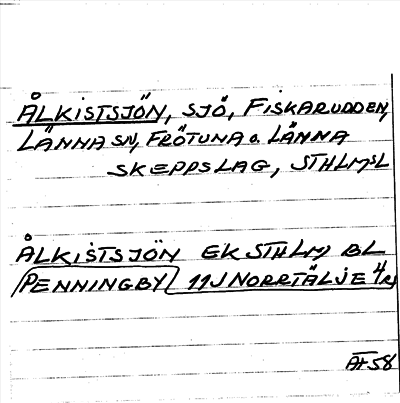 ÅLKISTSJÖN, SJÖ, FISKARUDDEN,
LÄNNA SN, FRÖTUNA O. LÄNNA
SKEPPSLAG, STHLMSL
ÅLKISTSJÖN EK STHLM BL
PENNINGBY 11J NORRTÄLJE
58